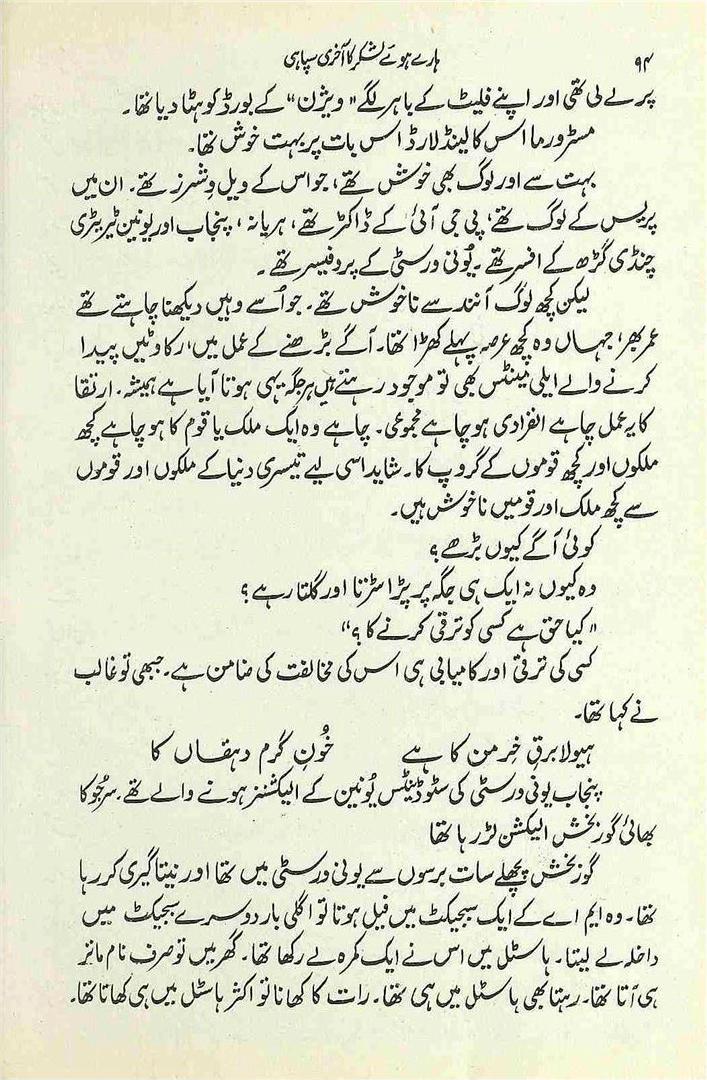 ۹۴ ہارے ہوئے لشکر کا آخری سپاہی
پر لے لی تھی اور اپنے فلیٹ کے باہر لگے "ویژن" کے بورڈ کو ہٹا دیا تھا۔
مسٹر ورما اس کا لینڈ لارڈ اس بات پر بہت خوش تھا۔
بہت سے اور لوگ بھی خوش تھے، جو اس کے ویل وشرز تھے۔ ان میں
پریس کے لوگ تھے، پی جی آئی کے ڈاکٹر تھے، ہریانہ، پنجاب اور یونین ٹیریٹری
چنڈی گڑھ کے افسر تھے۔ یُونی ورسٹی کے پروفیسر تھے۔
لیکن کچھ لوگ آنند سے ناخوش تھے۔ جو اُسے وہیں دیکھنا چاہتے تھے
عمر بھر، جہاں وہ کچھ عرصہ پہلے کھڑا تھا۔ آگے بڑھنے کے عمل میں، رکاوٹیں پیدا
کرنے والے ایلی مینٹس بھی تو موجود رہتے ہیں ہر جگہ یہی ہوتا آیا ہے ہمیشہ۔ ارتقا
کا یہ عمل چاہے انفرادی ہو چاہے مجموعی۔ چاہے وہ ایک ملک یا قوم کا ہو چاہے کچھ
ملکوں اور کچھ قوموں کے گروپ کا۔ شاید اسی لیے تیسری دنیا کے ملکوں اور قوموں
سے کچھ ملک اور قومیں ناخوش ہیں۔
کوئی آگے کیوں بڑھے؟
وہ کیوں نہ ایک ہی جگہ پر پڑا سڑتا اور گلتا رہے؟
"کیا حق ہے کسی کو ترقی کرنے کا؟"
کسی کی ترقی اور کامیابی ہی اس کی مخالفت کی ضامن ہے۔ جبھی تو غالب
نے کہا تھا۔
ہیولا برقِ خِرمن کا ہے خُونِ گرم دہقاں کا
پنجاب یونی ورسٹی کی سٹوڈینٹس یُونین کے الیکشنز ہونے والے تھے۔ سرجُو کا
بھائی گور بخش الیکشن لڑ رہا تھا
گور بخش پچھلے سات برسوں سے یونی ورسٹی میں تھا اور نیتا گیری کر رہا
تھا۔ وہ ایم اے کے ایک سبجیکٹ میں فیل ہوتا تو اگلی بار دوسرے سبجیکٹ میں
داخلہ لے لیتا۔ ہاسٹل میں اس نے ایک کمرہ لے رکھا تھا۔ گھر میں تو صرف نام ماتر
ہی آتا تھا۔ رہتا بھی ہاسٹل میں ہی تھا۔ رات کا کھانا تو اکثر ہاسٹل میں ہی کھاتا تھا۔